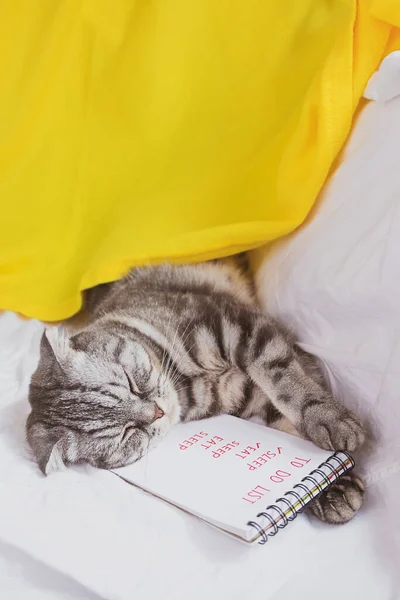 TO DO LIST
✓SLEEP
✓EAT
SLEEP
EAT
SLEEP